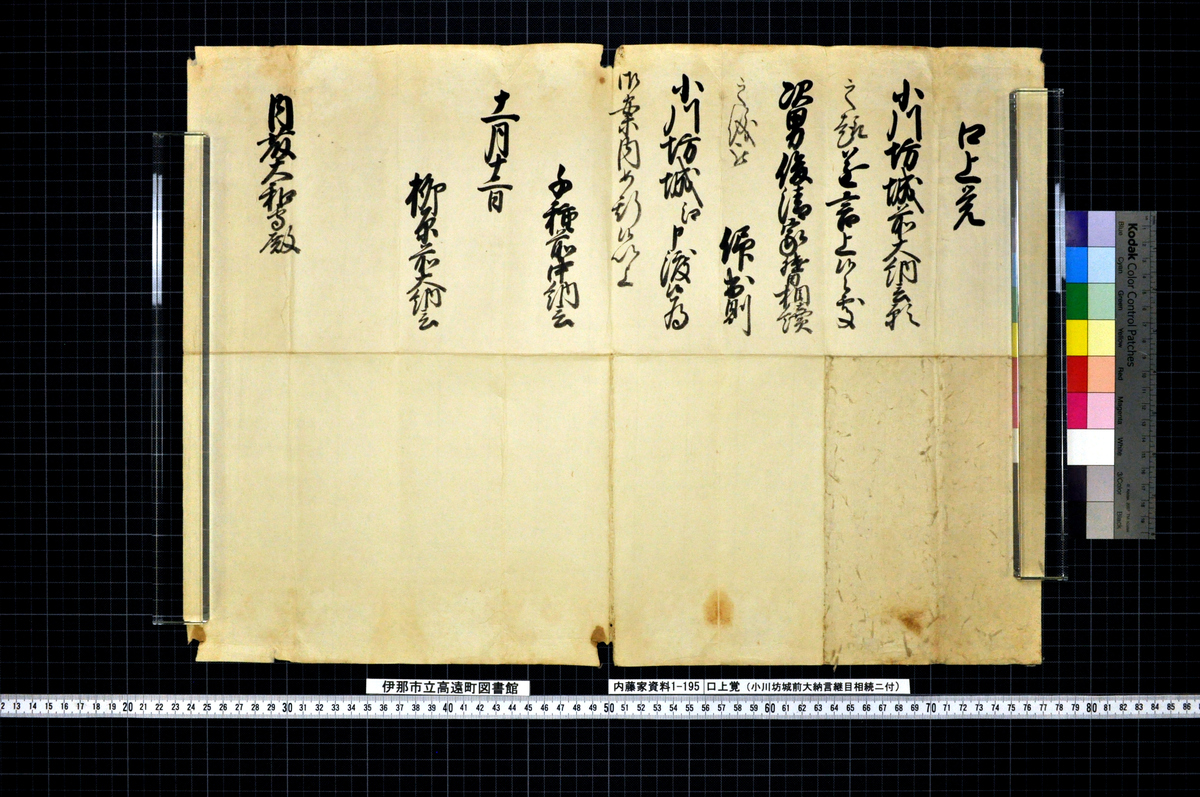 口上覚
小川坊城前大納言願
之趣並言上候処
次男俊清家督相続
之儀被
仰出則
小川坊城江申渡候為
御案内如斯候以上
十一月十二日
千種前中納言
柳原前大納言
内藤大和守殿
伊那市立高遠町図書館
内藤家資料1-195
口上覚（小川坊城前大納言継目相続ニ付）
Kodak Color Control Patches
Blue Cyan Green Yellow Red Magenta White 3/Color Black
2 13 14 15 16 17 18 19 20 21 22 23 24 25 26 27 28 29 30 31 32 33 34 35 36 37 38 39 40 41 42 43 44 45 46 47 48 49 50 51 52 53 54 55 56 57 58 59 60 61 62 63 64 65 66 67 68 69 70 71 72 73 74 75 76 77 78 79 80 81 82 83 84 85 86